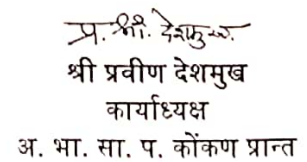 प्र. श्री. देशमुख.
श्री प्रवीण देशमुख
कार्याध्यक्ष
अ. भा. सा. प. कोंकण प्रान्त